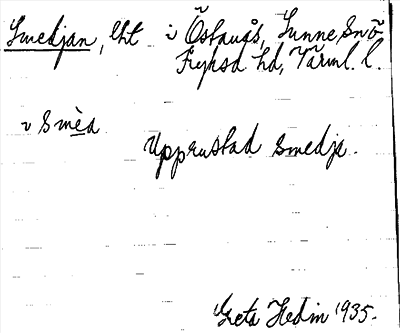 Smedjan, lht i Östanås, Sunne sn
Fryksd. hd, Värml. l.
v smèa
Upprustad smedja.
Greta Hedin 1935.